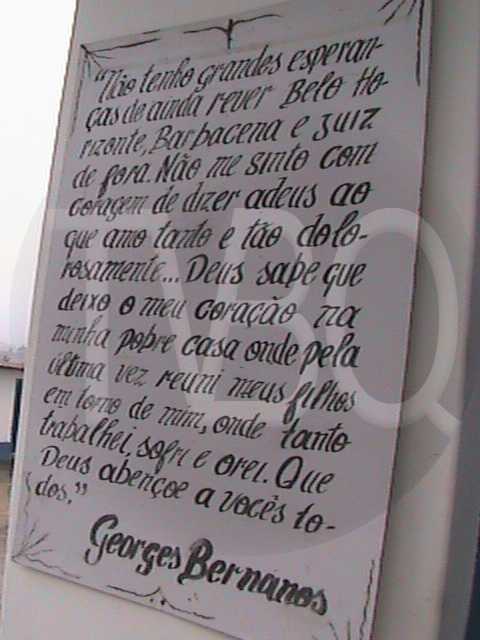 "Não tenho grandes esperan-
ças de ainda rever Belo Ho-
rizonte, Barbacena e Juiz
de fora. Não me sinto com
coragem de dizer adeus ao
que amo tanto e tão dolo-
rosamente... Deus sabe que
deixo o meu coração na
minha pobre casa onde pela
última vez reuni meus filhos
em torno de mim, onde tanto
trabalhei, sofri e orei. Que
Deus abençoe a vocês to-
dos."
Georges Bernanos
TVBQ